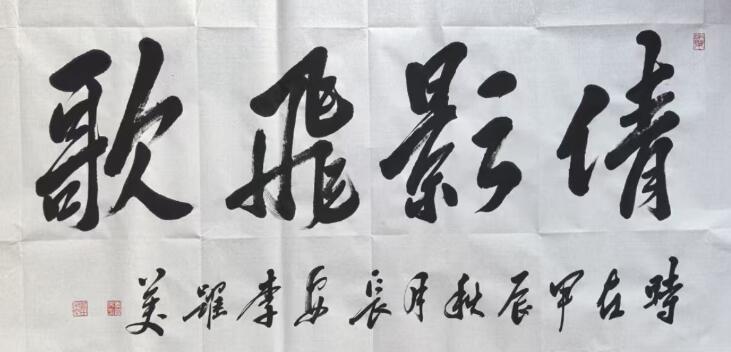 倩影飛歌
時在甲辰秋月長安李躍美